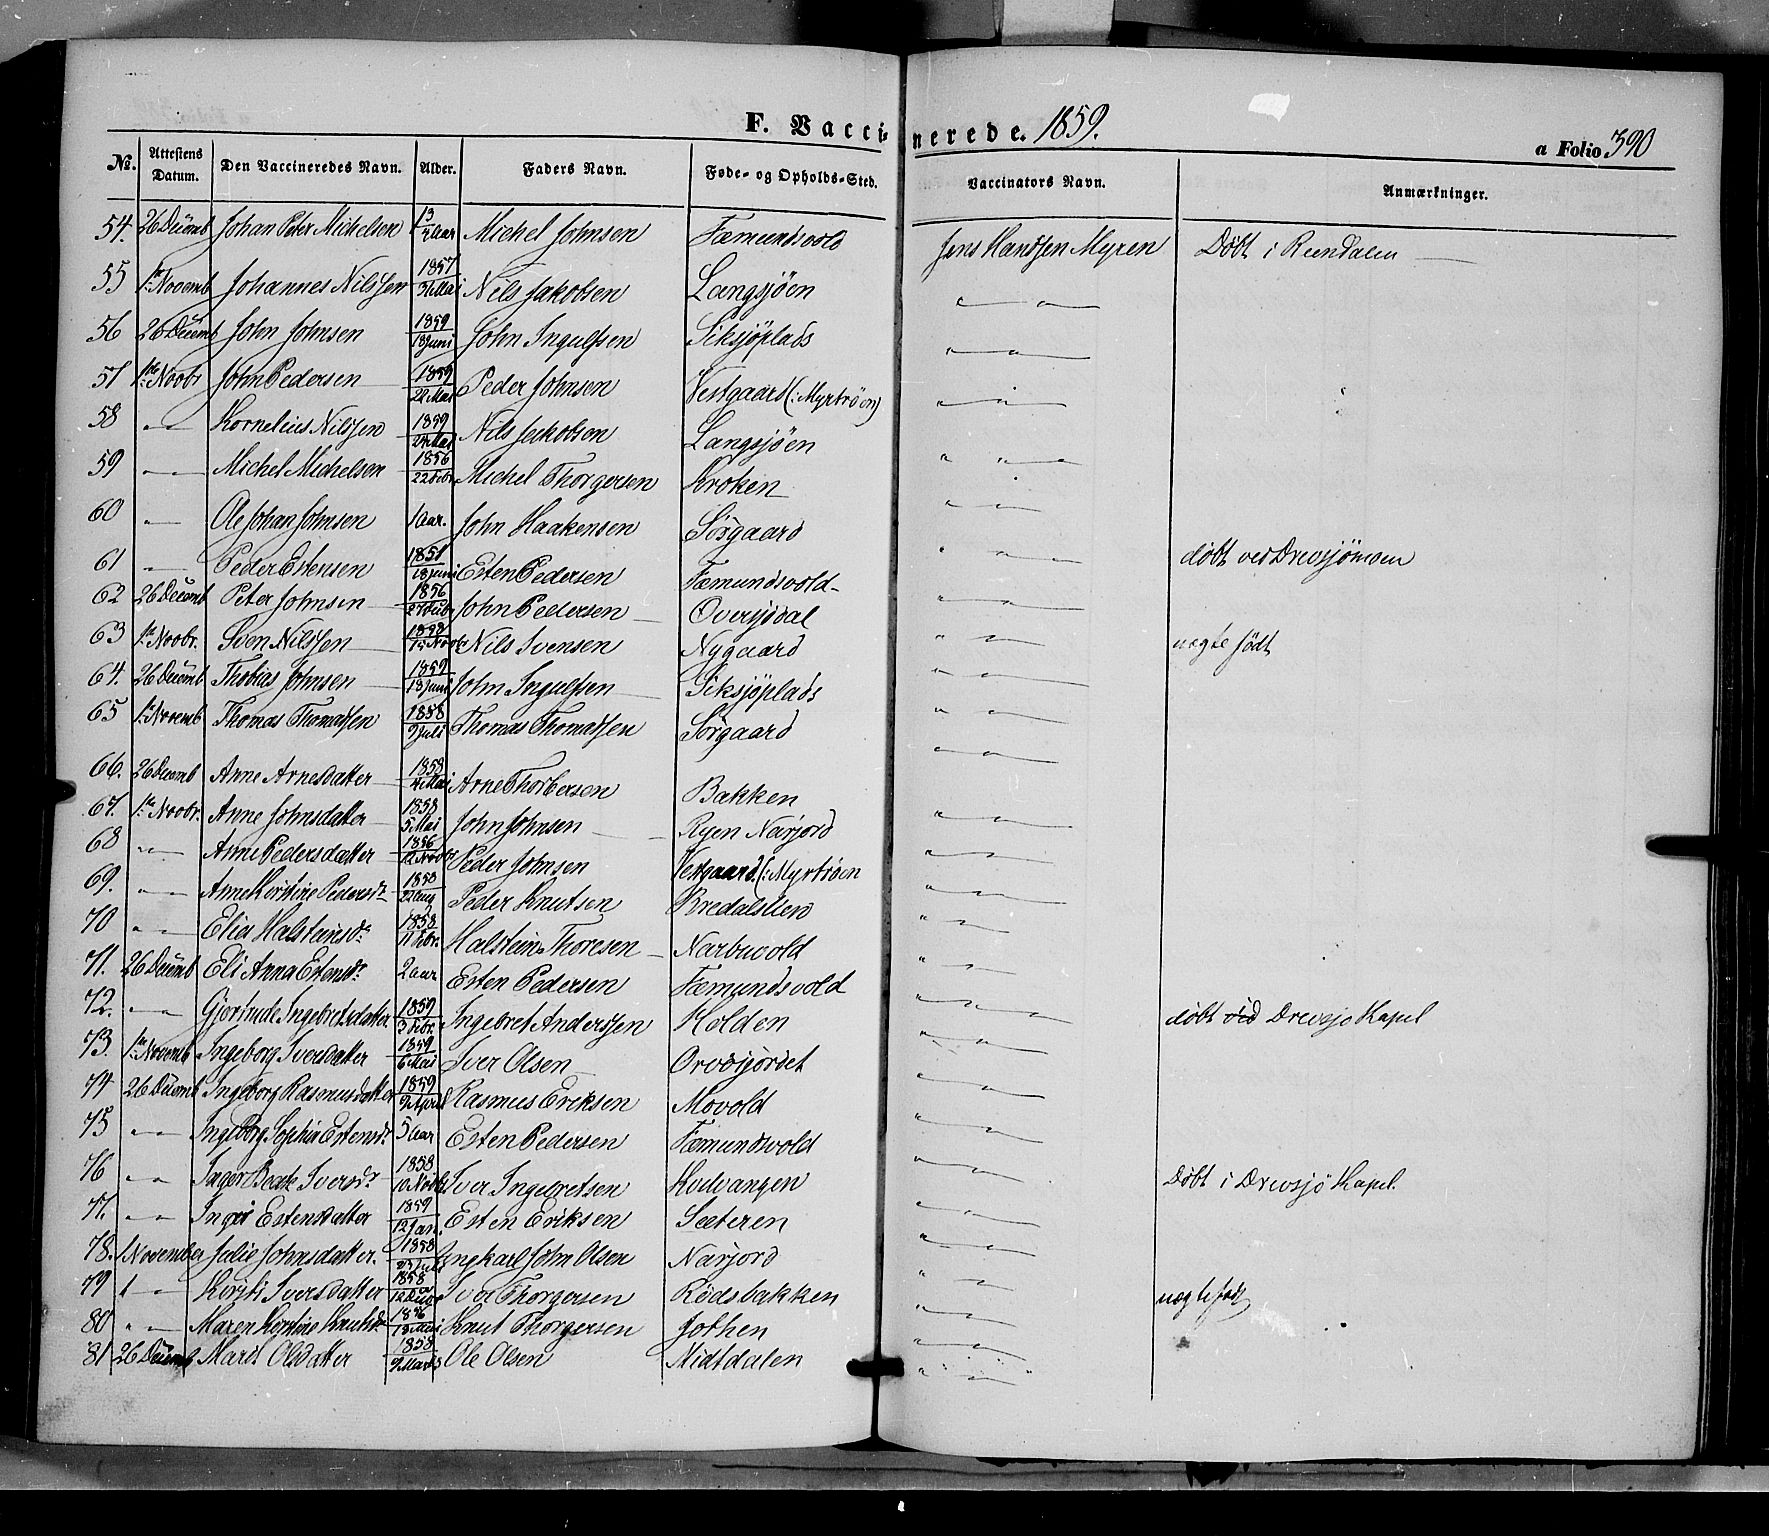 F. Vaccinerede. 1859.
a Folio 390
No. Attestens Datum. Den Vaccineredes Navn. Alder. Faders Navn. Føde- og Opholds-Sted. Vaccinators Navn. Anmærkninger.
54. 26 Decemb Johan Peter Michelsen Michel Johnsen Fæmundsvold Jens Handsen Myren Døbt i Rendalen
55 1ste Novemb Johannes Nilssen 1857 Mai Nils Jakobsen Langsjöen " "
56 26 Decemb John Johnsen 1859 18 Juni John Ingulfsen Siksjöplads " "
57 1ste Novbr John Pedersen 1859 22 Mai Peder Johnsen Vestgaard (: Myrtröen) " "
58 " Kornelius Nilssen 1859 24 Mai Nils Jakobsen Langsjöen " "
59 " Michel Michelsen 1856 22 Febr Michel Thorgersen Kroken " "
60 " Ole Johan Johnsen 1 Aar. John Haakensen Sörgaard " "
61 " Peder Estensen 1851 18 Juni Esten Pedersen Fæmundsvold " " döbt ved Drevsjömoen
62 26 Decemb Peter Johnsen 1856 John Pedersen Oversjödal " "
63 1ste Novbr. Sven Nilssen 1858 Novbr Nils Svensen Nygaard " " uægte födt
64. 26 Decemb Thobias Johnsen 1859 18 Juni John Ingulfsen Siksjöplads " "
65 1ste Novemb Thomas Thomassen 1858 9 Juli Thomas Thomassen Sörgaard " "
66. 26 Decemb Anne Arnesdatter 1858 Mai Arne Thorbersen Bakken " "
67. 1ste Novbr. Anne Johnsdatter 1858 5 Mai John Johnsen Ryen Narjord " "
68 " Anne Pedersdatter 1856 12 Novbr Peder Johnsen Vestgaard. (: Myrtröen " "
69. " Anne Kirstine Pedersdr 1858 22 Aug Peder Knutsen Bredalslien " "
70 " Halsteinsdr 1858 11 Febr. Halstein Thoresen Narbuvold " "
71. 26 Decemb Eli Anna Estensdr 2 aar Esten Pedersen Fæmundsvold " "
72. " Gjertrude Ingebretsdatter 1859 3 Febr. Ingebret Anderssen Holden " " döbt ved Drevsjo Kapel
73. 1ste Novemb Ingeborg Iversdatter 1859 6 Mai Iver Olsen Orvosjordet " "
74 26 Decemb Ingeborg Rasmusdatter 1859 9 April Rasmus Eriksen Movold " "
75 " Ingeborg Sophie Estensdr 5 aar Esten Pedersen Fæmundsvold " "
76 " Inger Beate Iversdr 1858 10 Novbr Iver Ingebretsen Kvilvangen " " Döbt i Drevsjö Kapel.
77. " Ingri Estensdatter 1859 12 Jan. Esten Eriksen Sæteren " "
78. 1 November Julie Johnsdatter. 1858 Juli Ungkarl John Olsen Narjord " "
79 " Kirsti Iversdatter 1858 Iver Thorgersen Rödsbakken " " uægte föd
80 " Maren Kirstine Knutsdr 1856 Knut Thorgersen Jothen " "
81 26 Decemb Marit Olsdatter 1858 9 Marts Ole Olsen Nidtdalen " "